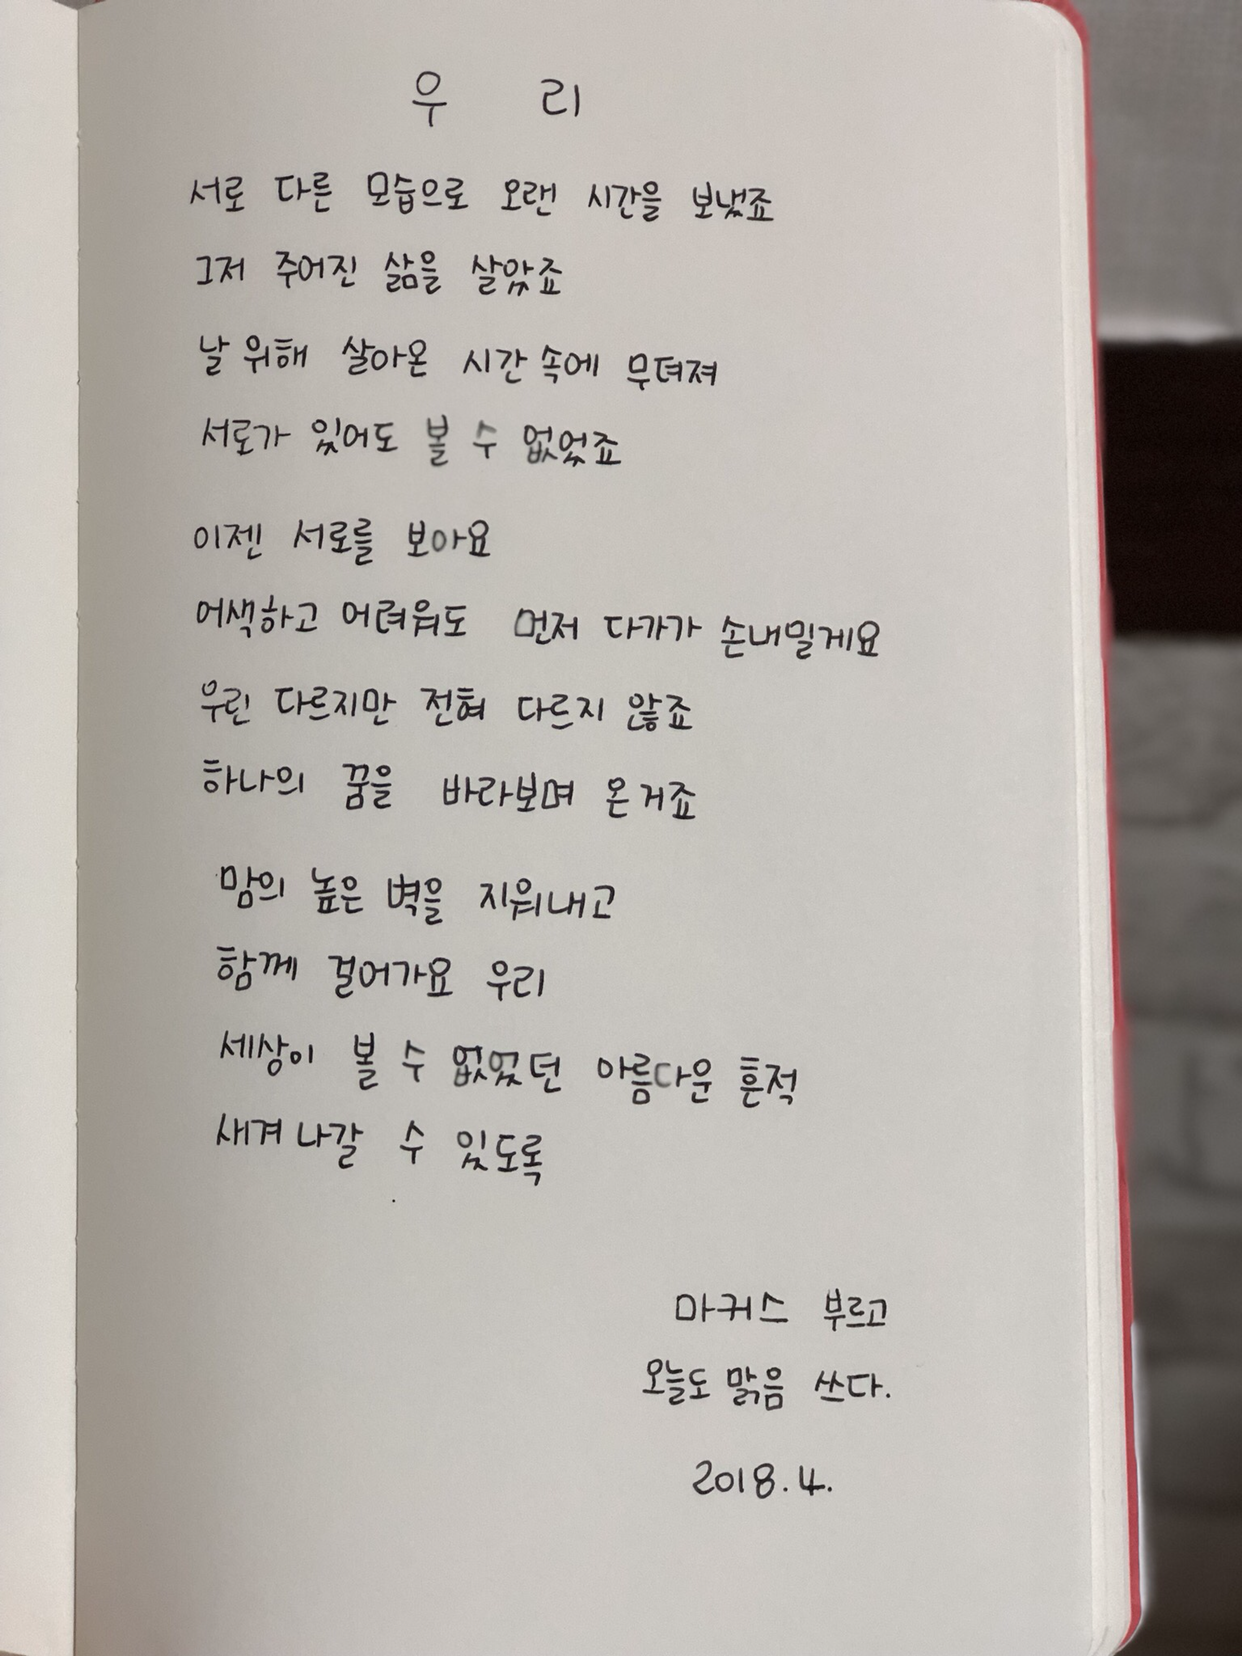 우 리
서로 다른 모습으로 오랜 시간을 보냈죠
그저 주어진 삶을 살았죠
날 위해 살아온 시간 속에 무뎌져
서로가 있어도 볼 수 없었죠
이젠 서로를 보아요
어색하고 어려워도 먼저 다가가 손내밀게요
우린 다르지만 전혀 다르지 않죠
하나의 꿈을 바라보며 온거죠
맘의 높은 벽을 지워내고
함께 걸어가요 우리
세상이 볼 수 없었던 아름다운 흔적
새겨 나갈 수 있도록
마커스 부르고
오늘도 맑음 쓰다.
2018.4.